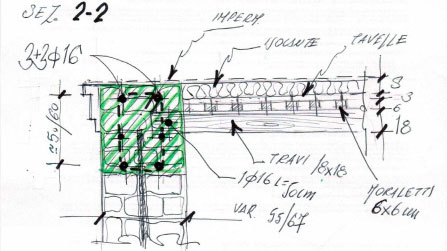 SEZ. 2-2
IMPERM.
ISOLANTE
TAVELLE
3+2ϕ16
8
3
6
18
≃50/60
TRAVI 18x18
1ϕ16 L=
50cm
MORALETTI
6x6 cm
VAR. 55/67